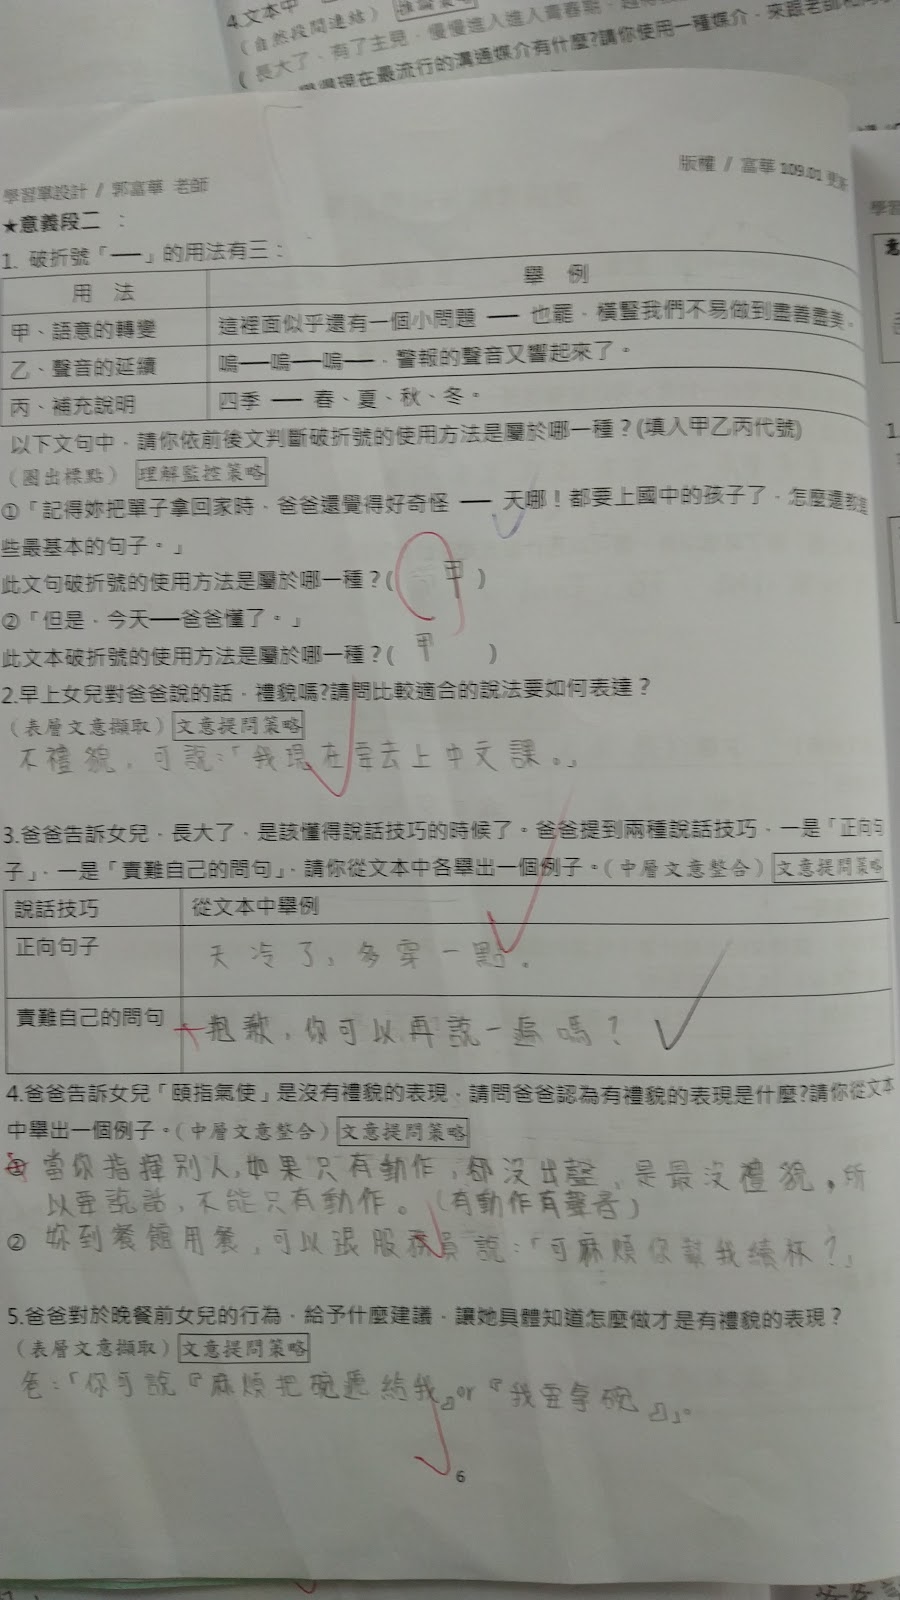 4.文本中
（自然段間連結）
（長大了、有了主見，慢慢進入進入青春期，
現在最流行的溝通媒介有什麼?請你使用一種媒介，來跟老師
學習單設計 / 郭富華 老師
版權 / 富華 109.01 更新
★意義段二 ：
1. 破折號「──」的用法有三：
用 法 舉 例
甲、語意的轉變 這裡面似乎還有一個小問題 ── 也罷，橫豎我們不易做到盡善盡美。
乙、聲音的延續 嗚──嗚──嗚──，警報的聲音又響起來了。
丙、補充說明 四季 ── 春、夏、秋、冬。
以下文句中，請你依前後文判斷破折號的使用方法是屬於哪一種？(填入甲乙丙代號)
（圈出標點） 理解監控策略
①「記得妳把單子拿回家時，爸爸還覺得好奇怪 ── 天哪！都要上國中的孩子了，怎麼還教這
些最基本的句子。」
此文句破折號的使用方法是屬於哪一種？( 甲 )
②「但是，今天──爸爸懂了。」
此文本破折號的使用方法是屬於哪一種？( 甲 )
2.早上女兒對爸爸說的話，禮貌嗎?請問比較適合的說法要如何表達？
（表層文意擷取）文意提問策略
不禮貌，可說：「我現在要去上中文課。」
3.爸爸告訴女兒，長大了，是該懂得說話技巧的時候了。爸爸提到兩種說話技巧，一是「正向句
子」，一是「責難自己的問句」，請你從文本中各舉出一個例子。（中層文意整合）文意提問策略
說話技巧 從文本中舉例
正向句子 天冷了，多穿一點。
責難自己的問句 抱歉，你可以再說一遍嗎？
4.爸爸告訴女兒「頤指氣使」是沒有禮貌的表現，請問爸爸認為有禮貌的表現是什麼?請你從文本
中舉出一個例子。（中層文意整合）文意提問策略
當你指揮別人，如果只有動作，都沒出聲，是最沒禮貌，所
以要說話，不能只有動作。（有動作有聲音）
② 妳到餐館用餐，可以跟服務員說：「可麻煩你幫我續杯？」
5.爸爸對於晚餐前女兒的行為，給予什麼建議，讓她具體知道怎麼做才是有禮貌的表現？
（表層文意擷取）文意提問策略
爸：「你可說『麻煩把碗遞給我』or『我要拿碗』」。
6